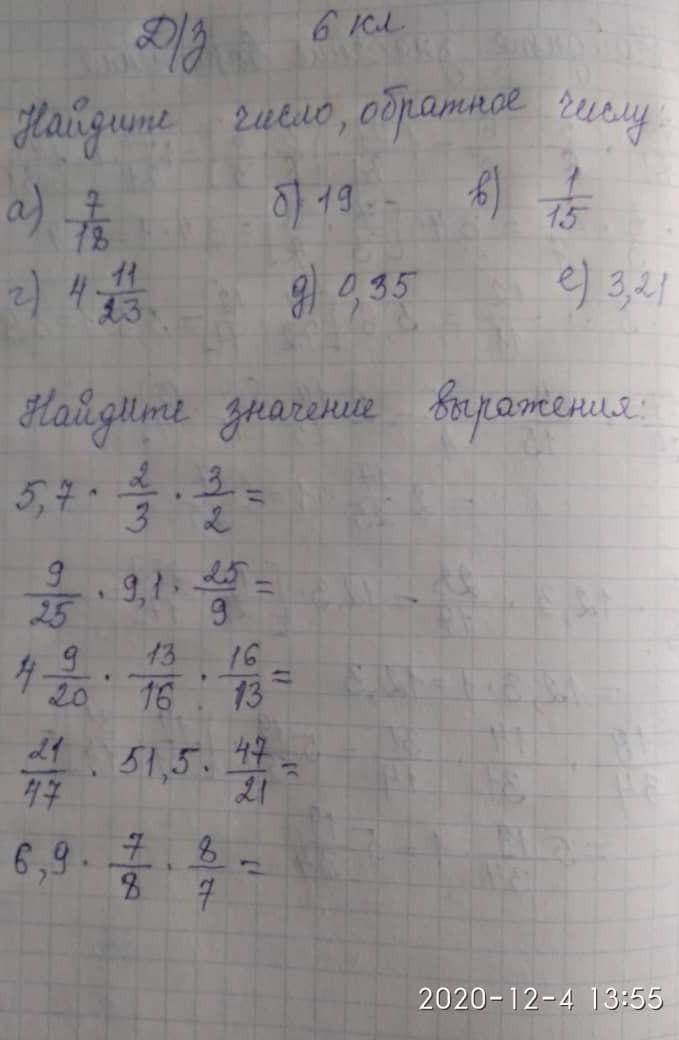 Д/З 6 кл
Найдите число, обратное числу:
а) 7/18 б) 19 в) 1/15
г) 4 11/23 д) 0,35 е) 3,21
Найдите значение выражения:
5,7 · 2/3 · 3/2 =
9/25 · 9,1 · 25/9 =
4 9/20 · 13/16 · 16/13 =
21/47 · 51,5 · 47/21 =
6,9 · 7/8 · 8/7 =
2020-12-4 13:55